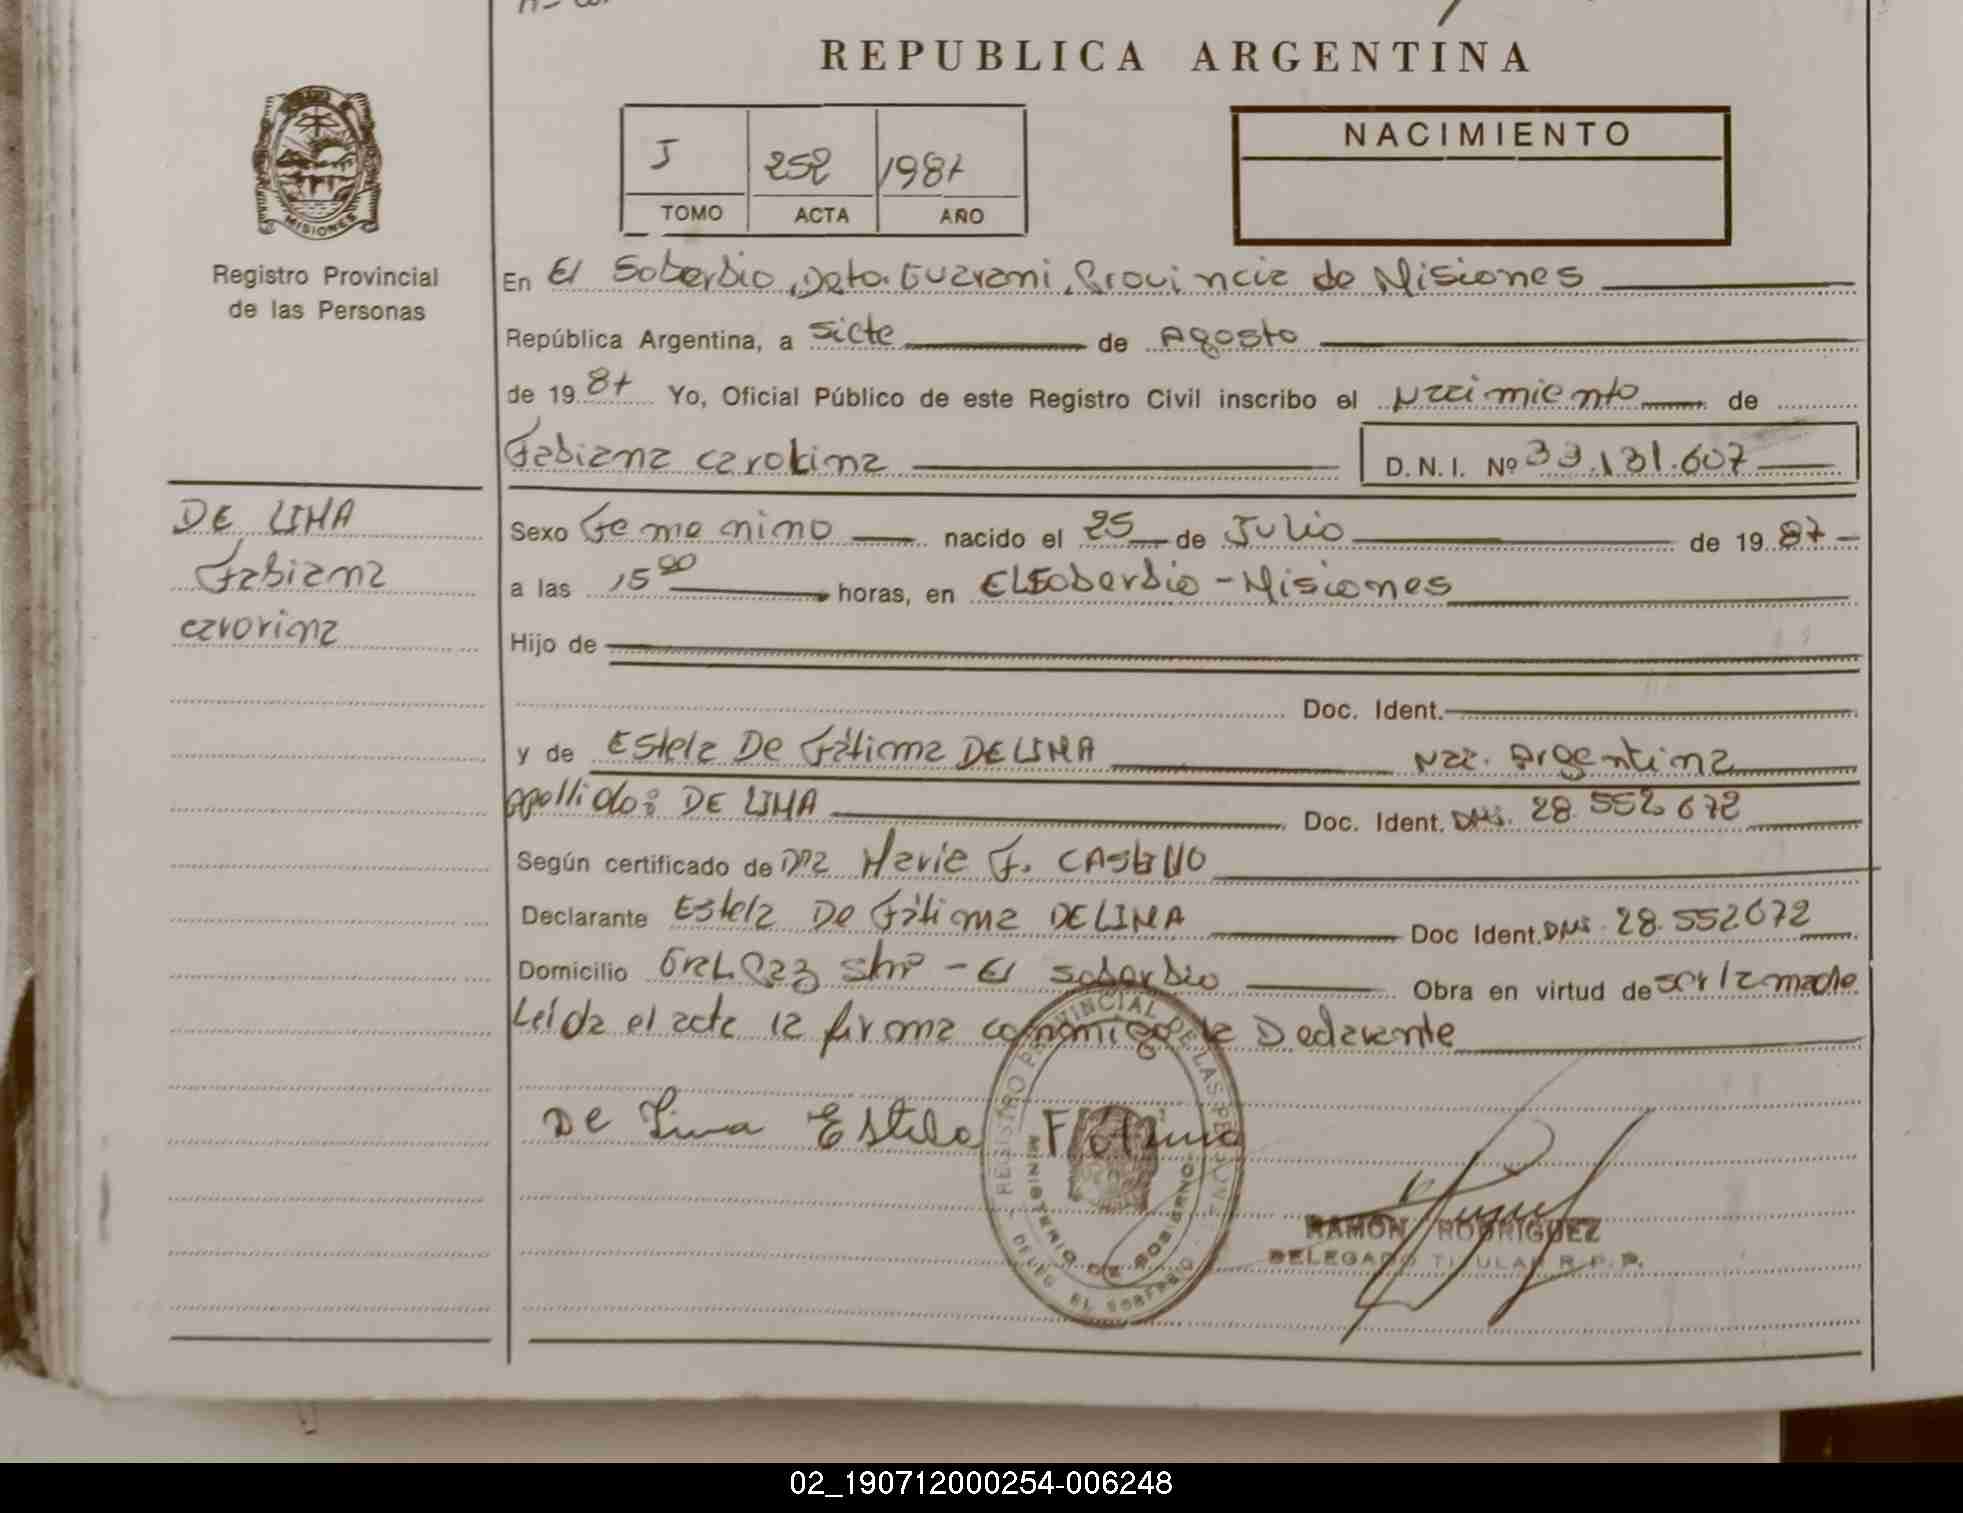 REPUBLICA ARGENTINA
J 252 1987
TOMO ACTA AÑO
NACIMIENTO
MISIONES
Registro Provincial
de las Personas
En El Soberbio, Dpto. Guarani, Provincia de Misiones
República Argentina, a siete de Agosto
de 1987 Yo, Oficial Público de este Registro Civil inscribo el Nacimiento de
Fabiana Carolina D.N.I. Nº 33.131.607
DE LIMA
Fabiana
Carorina
Sexo Femenino nacido el 25 de Julio de 1987
a las 15 00 horas, en El Soberbio - Misiones
Hijo de
Doc. Ident.
y de Estela De Fátima DE LIMA Nac. Argentina
Apellido: DE LIMA Doc. Ident. DNI. 28.552.672
Según certificado de Dra Maria F.
Declarante Estela De Fátima DE LIMA Doc Ident. DNI. 28.552672
Domicilio Gral Paz s/nº - El Soberbio Obra en virtud de ser la madre
Leida el acta la firma conmigo la Declarante
De Lima Estela Fatima
REGISTRO PROVINCIAL DE LAS PERSONAS
MINISTERIO DE GOBIERNO
DELEG. EL SOBERBIO
RAMON RODRIGUEZ
DELEGADO TITULAR R.P.P.
02_190712000254-006248